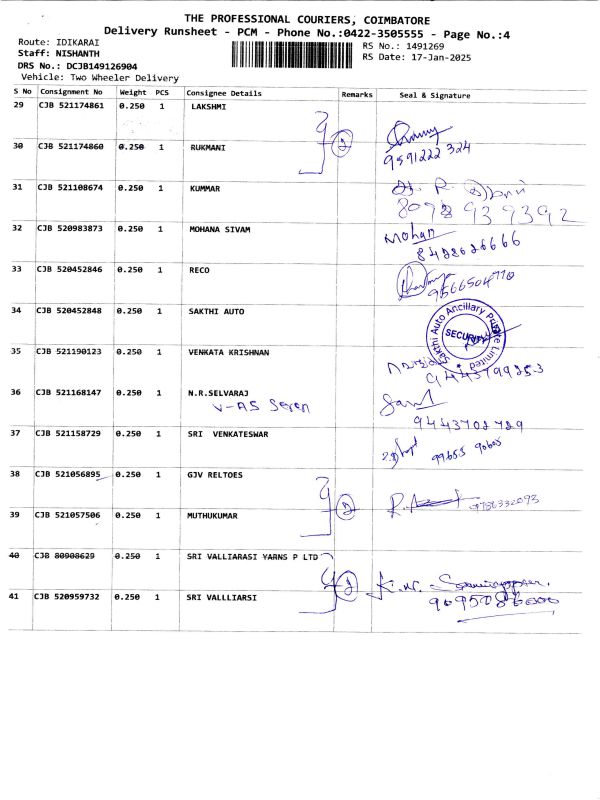 THE PROFESSIONAL COURIERS, COIMBATORE
Delivery Runsheet - PCM - Phone No.:0422-3505555 - Page No.:4
Route: IDIKARAI
RS No.: 1491269
Staff: NISHANTH
RS Date: 17-Jan-2025
DRS No.: DCJB149126904
Vehicle: Two Wheeler Delivery
S No Consignment No Weight PCS Consignee Details Remarks Seal & Signature
29 CJB 521174861 0.250 1 LAKSHMI
2
30 CJB 521174860 0.250 1 RUKMANI
9591222 324
31 CJB 521108674 0.250 1 KUMMAR
8098939392
32 CJB 520983873 0.250 1 MOHANA SIVAM Mohan
8428626666
33 CJB 520452846 0.250 1 RECO
9566504770
34 CJB 520452848 0.250 1 SAKTHI AUTO
Sakthi Auto Ancillary Private Limited
SECURITY
35 CJB 521190123 0.250 1 VENKATA KRISHNAN
9443799253
36 CJB 521168147 0.250 1 N.R.SELVARAJ
V-AS Seren
9443702729
37 CJB 521158729 0.250 1 SRI VENKATESWAR
99655 90605
38 CJB 521056895 0.250 1 GJV RELTOES
2
39 CJB 521057506 0.250 1 MUTHUKUMAR
40 CJB 80908629 0.250 1 SRI VALLIARASI YARNS P LTD
2
41 CJB 520959732 0.250 1 SRI VALLLIARSI
9095086000